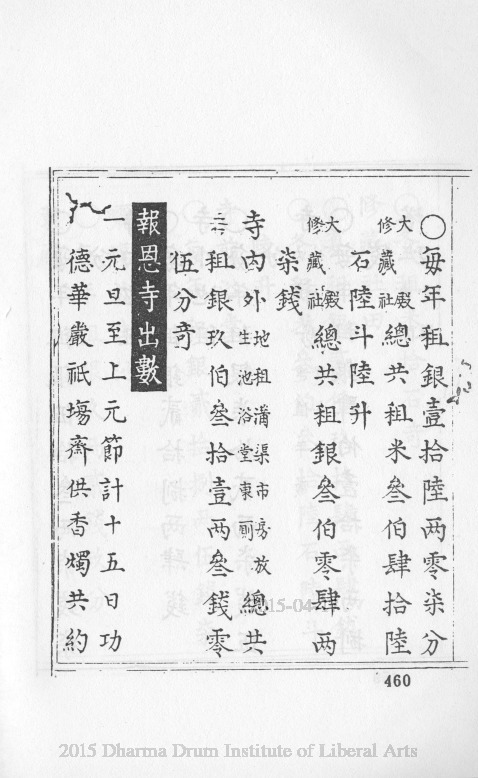 〇每年租銀壹拾陸两零柒分
大殿修藏社總共租米叄伯肆拾陸
石陸斗陸升
大殿修藏社總共租銀叄伯零肆两
柒錢
寺內外地租溝渠市房放生池浴堂東厠總共
租銀玖伯叄拾壹两叄錢零
伍分竒
報恩寺出數
一元旦至上元節計十五日功
德華嚴祇塲齋供香燭共約
460
2015 Dharma Drum Institute of Liberal Arts